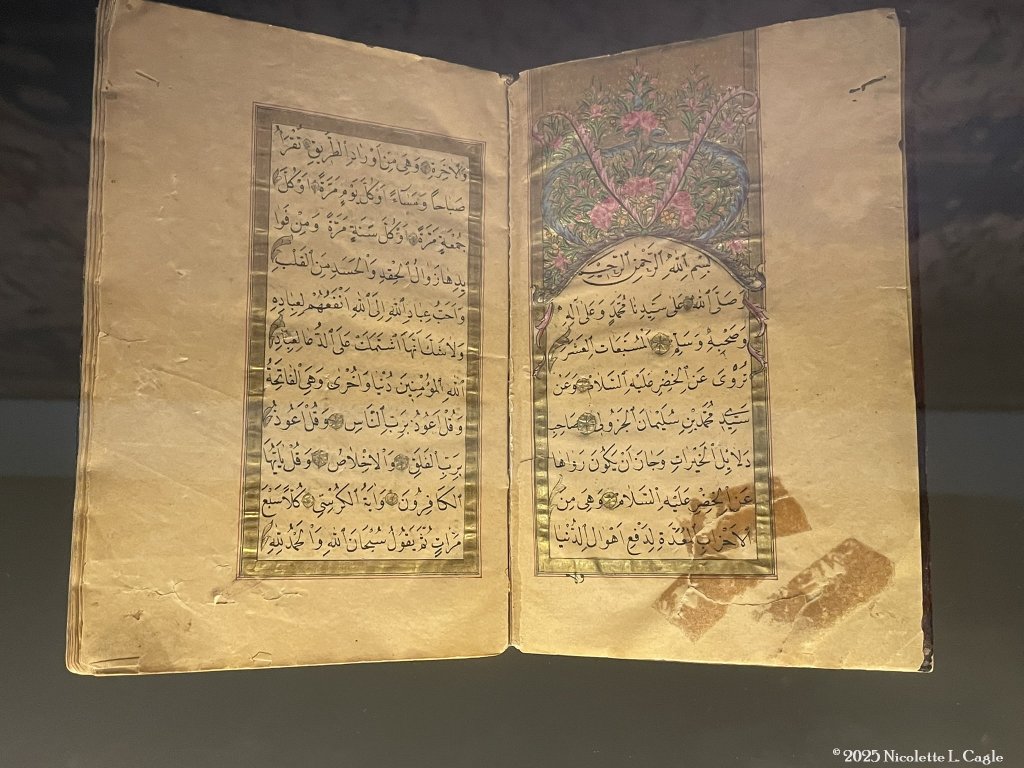 بِسْمِ اللهِ الرَّحْمٰنِ الرَّحِيمِ
صَلَّى اللهُ عَلَى سَيِّدِنَا مُحَمَّدٍ وَعَلَى اٰلِهِ
وَصَحْبِهِ وَسَلَّمَ الْمُسَبَّعَاتُ الْعَشْرُ
تُرْوَى عَنِ الْخَضِرِ عَلَيْهِ السَّلَامُ وَعَنْ
سَيِّدِي مُحَمَّدِ بْنِ سُلَيْمَانَ الْجَزُولِي صَاحِبِ
دَلَائِلِ الْخَيْرَاتِ وَجَازَ اَنْ يَكُونَ رَوَاهَا
عَنِ الْخَضِرِ عَلَيْهِ السَّلَامُ وَهِيَ مِنَ
الْاَحْزَابِ الْمُعَدَّةِ لِدَفْعِ اَهْوَالِ الدُّنْيَا
وَالْاٰخِرَةِ وَهِيَ مِنْ اَوْرَادِ الطَّرِيقِ تُقْرَأُ
صَبَاحًا وَمَسَاءً اَوْ كُلَّ يَوْمٍ مَرَّةً اَوْ كُلَّ
جُمُعَةٍ مَرَّةً اَوْ كُلَّ سَنَةٍ مَرَّةً وَمِنْ فَوَا
يِدِهَا زَوَالُ الْحِقْدِ وَالْحَسَدِ مِنَ الْقَلْبِ
وَاَحَبُّ عِبَادِ اللهِ اِلَى اللهِ اَنْفَعُهُمْ لِعِبَادِهِ
وَلَا شَكَّ اَنَّهَا اشْتَمَلَتْ عَلَى الدُّعَا لِعِبَادِ
اللهِ الْمُؤْمِنِينَ دُنْيَا وَاُخْرَى وَهِيَ الْفَاتِحَةُ
وَقُلْ اَعُوذُ بِرَبِّ النَّاسِ وَقُلْ اَعُوذُ
بِرَبِّ الْفَلَقِ وَالْاِخْلَاصُ وَقُلْ يٰاَيُّهَا
الْكَافِرُونَ وَاٰيَةُ الْكُرْسِيِّ كُلًّا سَبْعَ
مَرَّاتٍ ثُمَّ يَقُولُ سُبْحَانَ اللهِ وَالْحَمْدُ لِلّٰهِ
© 2025 Nicolette L. Cagle